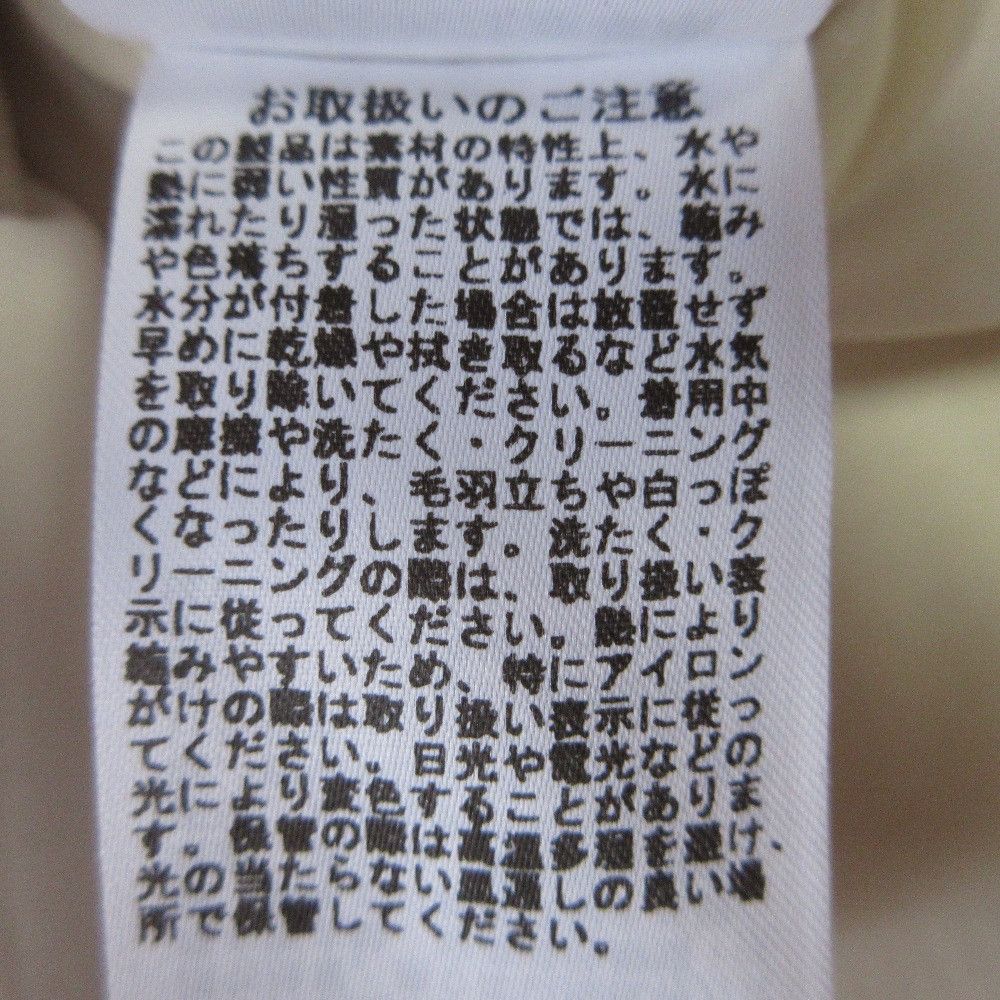 お取扱いのご注意
この製品は素材の特性上、水や
熱に弱い性質があります。水に
濡れたり湿った状態では、縮み
や色落ちすることがあります。
水分が付着した場合は放置せず
早めに乾いた布で拭き取るなど水気
を取り除いてください。着用中
の摩擦や洗たく・クリーニング
などにより、毛羽立ちや白っぽ
くなったりします。洗たく・ク
リーニングの際は、取り扱い表
示に従ってください。熱により
縮みやすいため、特にアイロン
がけの際は、取り扱い表示に従っ
てください。日光や電光などの
光により変色することがありま
す。保管の際は高温多湿を避け、
光の当たらない風通しの良い場
所で保管してください。